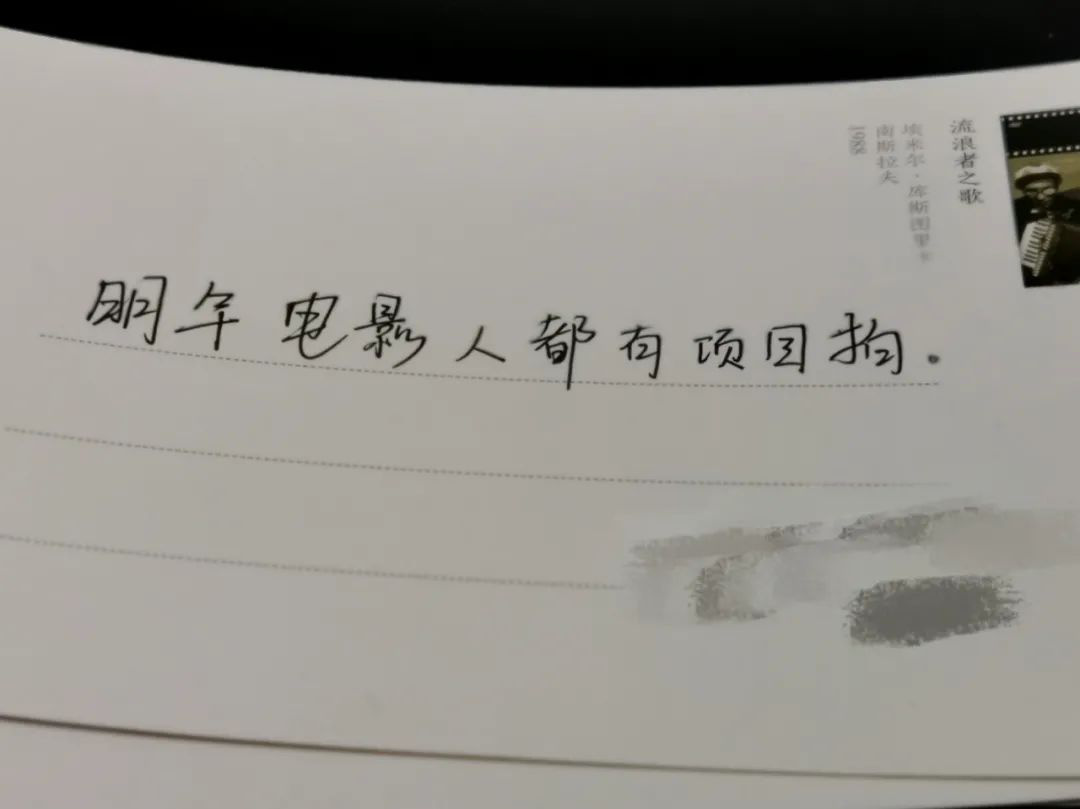 流浪者之歌
埃米尔·库斯图里卡
南斯拉夫
1988
明年电影人都有项目拍.